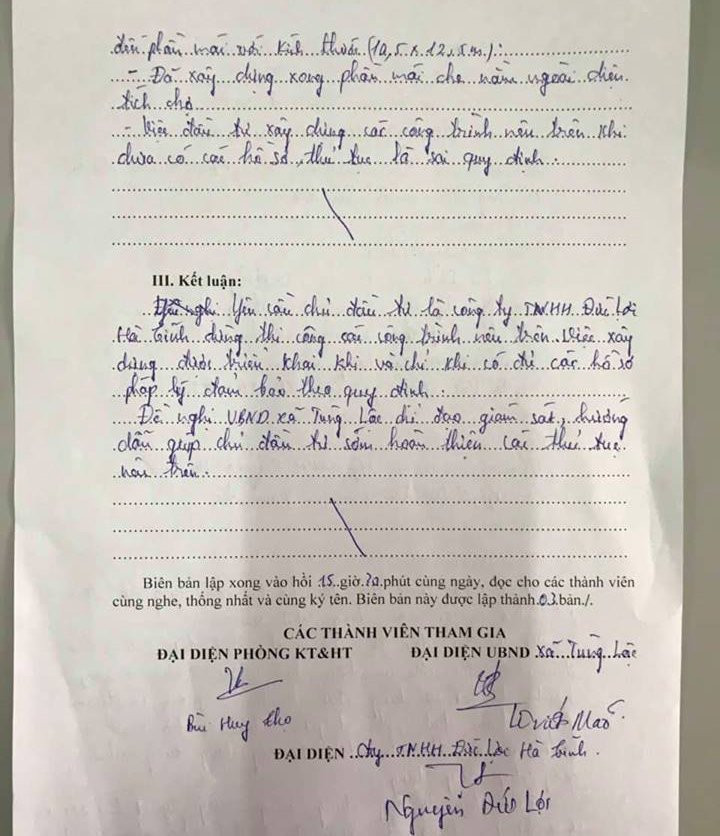 đến phần mái với kích thước (10,5 x 12,5m):
- Đã xây dựng xong phần mái che nằm ngoài diện
tích chợ
- Việc đầu tư xây dựng các công trình nêu trên khi
chưa có các hồ sơ, thủ tục là sai quy định.
III. Kết luận:
Yêu cầu chủ đầu tư là công ty TNHH Đức Lợi
Hà Tĩnh dừng thi công các công trình nêu trên. Việc xây
dựng được triển khai khi và chỉ khi có đủ các hồ sơ
pháp lý đảm bảo theo quy định.
Đề nghị UBND xã Tùng Lộc chỉ đạo giám sát, hướng
dẫn giúp chủ đầu tư sớm hoàn thiện các thủ tục
nêu trên.
Biên bản lập xong vào hồi 15 giờ phút cùng ngày, đọc cho các thành viên
cùng nghe, thống nhất và cùng ký tên. Biên bản này được lập thành 03 bản./.
CÁC THÀNH VIÊN THAM GIA
ĐẠI DIỆN PHÒNG KT&HT ĐẠI DIỆN UBND xã Tùng Lộc
Bùi Huy Thọ
ĐẠI DIỆN Cty TNHH Đức Hà Tĩnh.
Nguyễn Đức Lợi